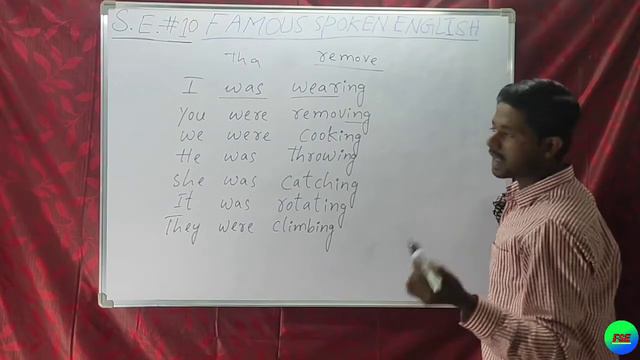 S.E.#10 FAMOUS SPOKEN ENGLISH
Tha remove
I was wearing
You were removing
we were cooking
He was Throwing
she was catching
It was rotating
They were climbing
FSE